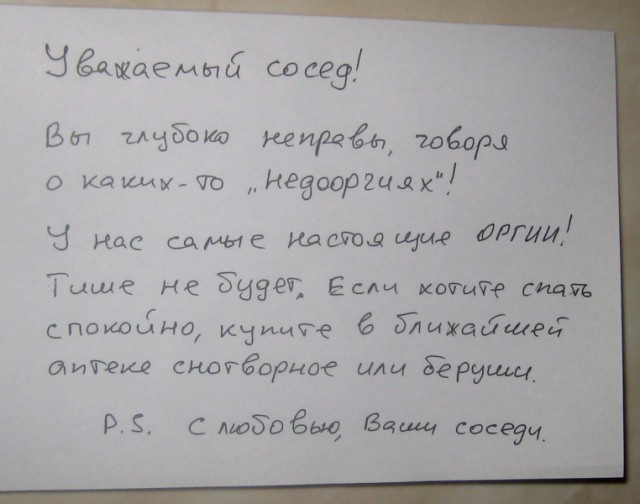 Уважаемый сосед!
Вы глубоко неправы, говоря
о каких-то „недооргиях"!
У нас самые настоящие ОРГИИ!
Тише не будет. Если хотите спать
спокойно, купите в ближайшей
аптеке снотворное или беруши.
P.S. С любовью, Ваши соседи.